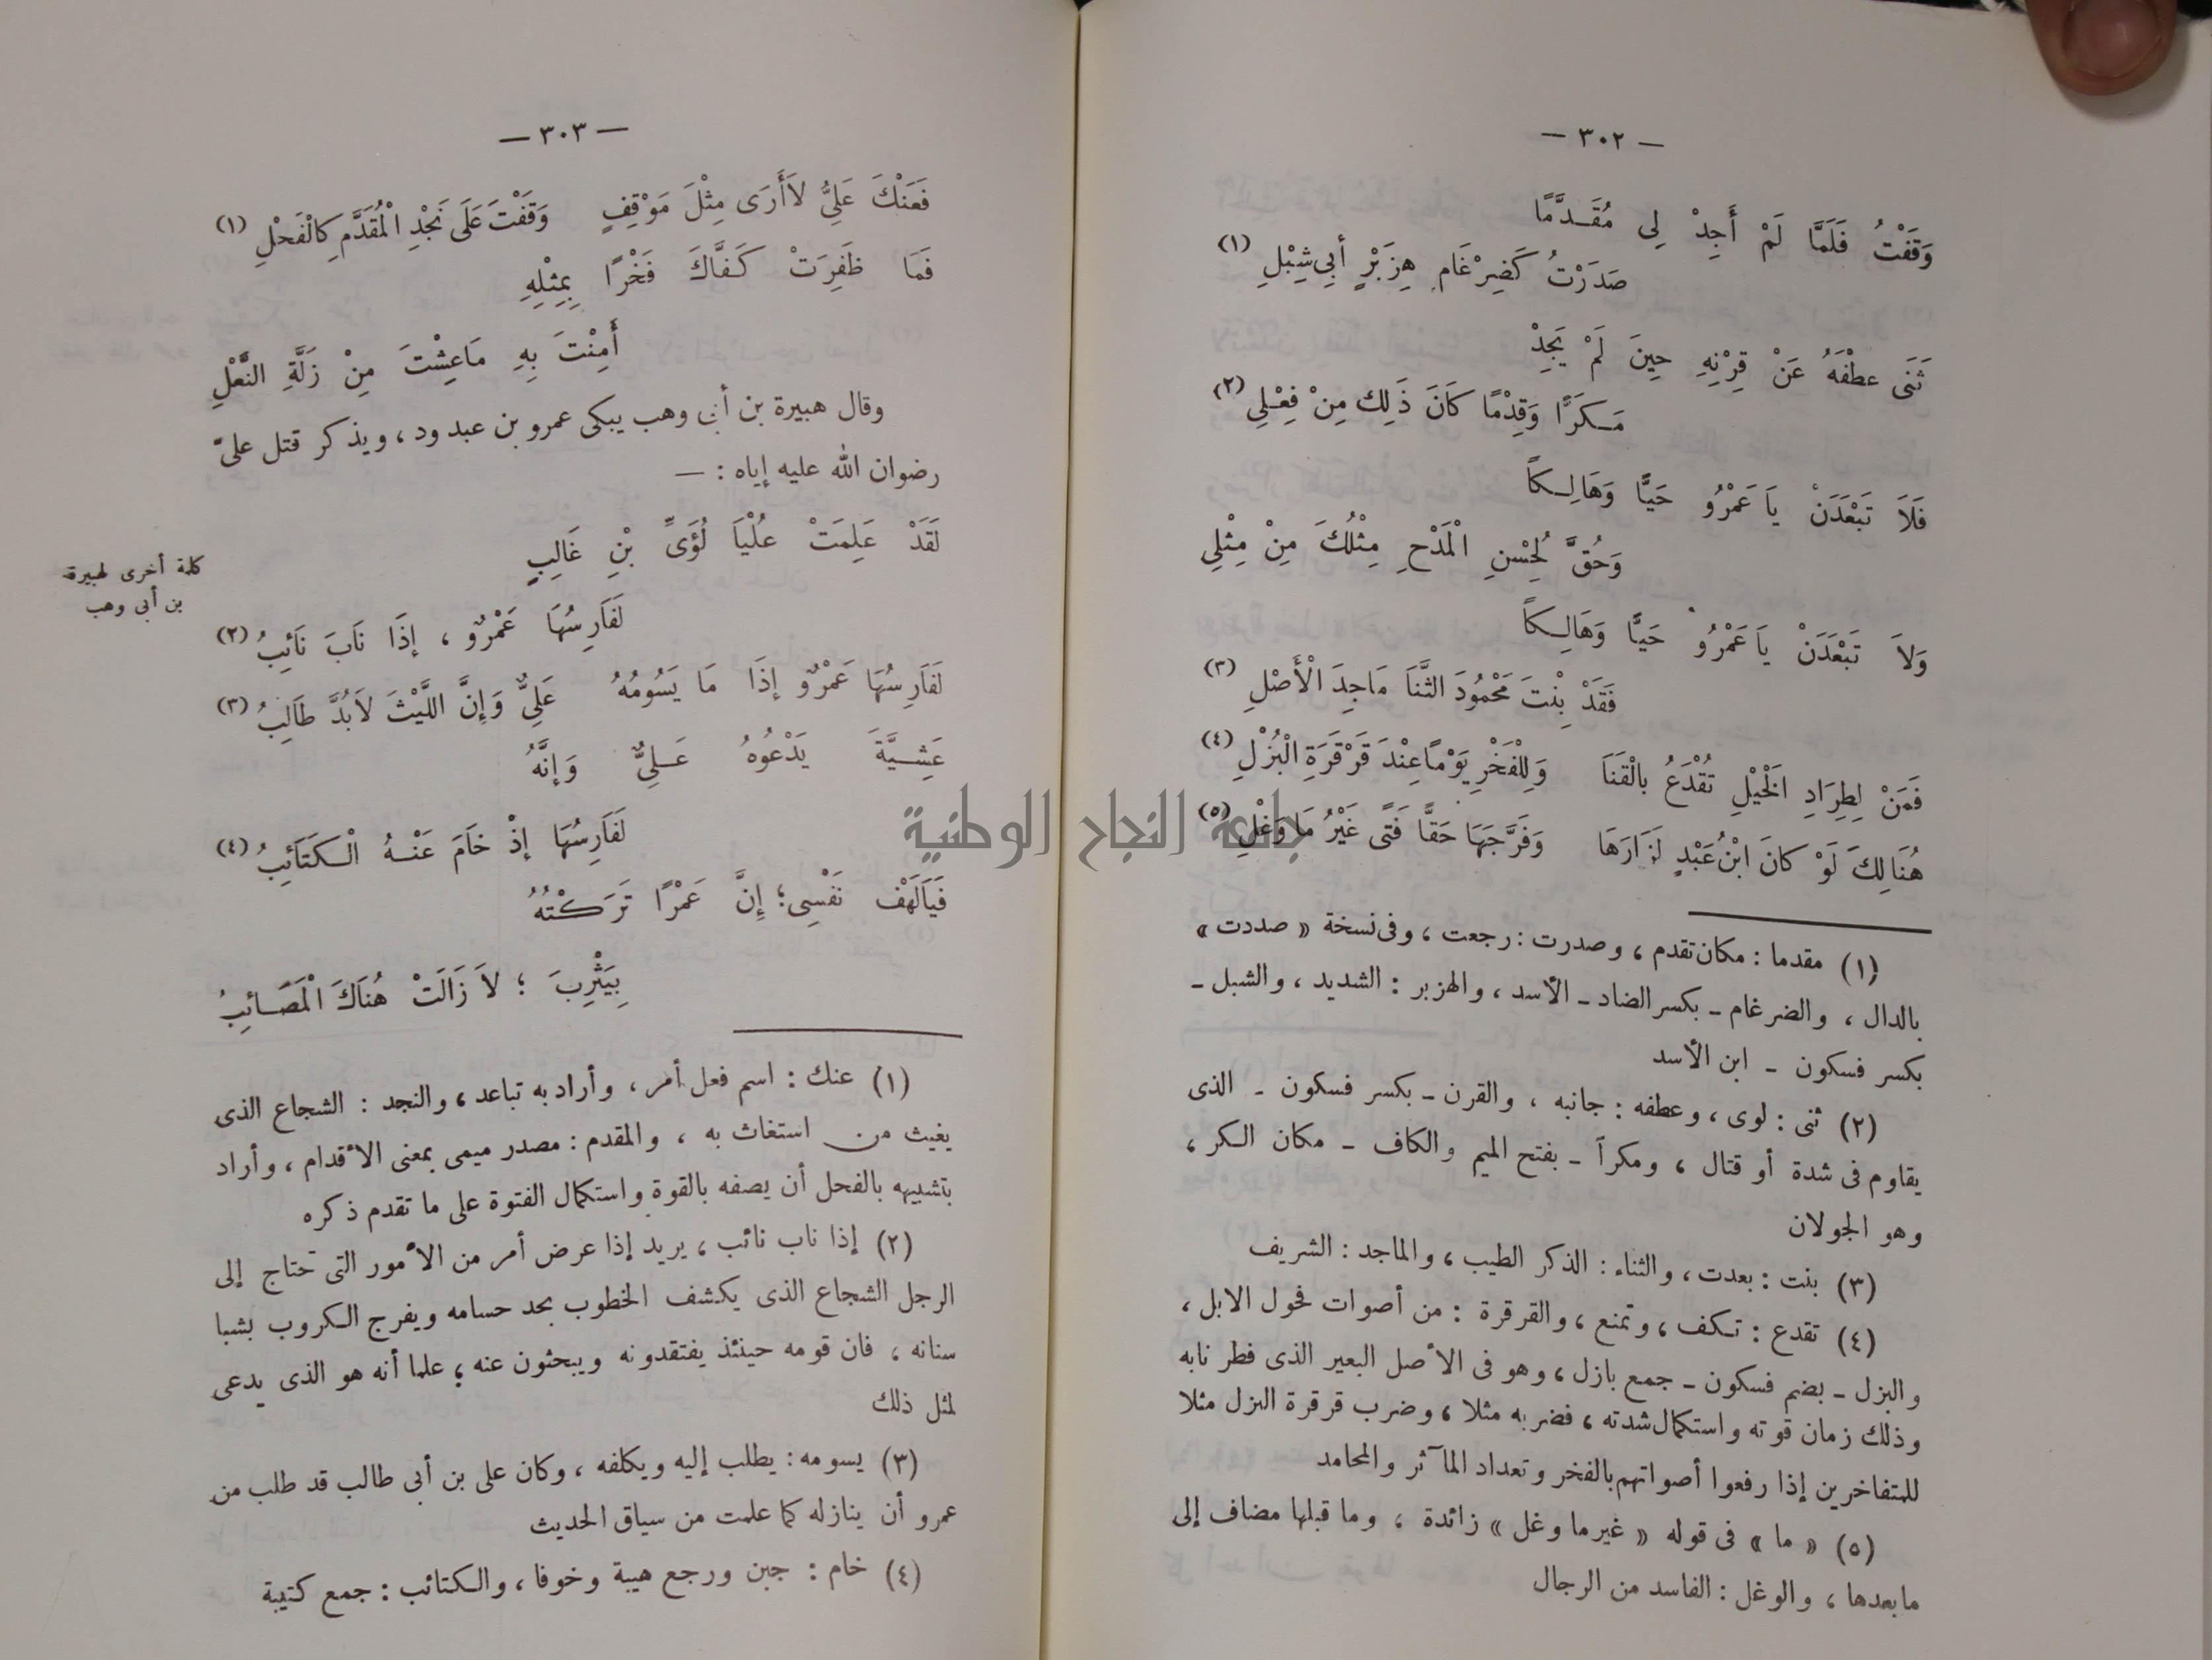 — ٣٠٢ —
وَقَفْتُ فَلَمَّا لَمْ أَجِدْ لِى مُقَدَّمًا
صَدَرْتُ كَضِرْغَامٍ هِزَبْرٍ أَبِى شِبْلِ (١)
ثَنَى عِطْفَهُ عَنْ قِرْنِهِ حِينَ لَمْ يَجِدْ
مَكَرًّا وَقِدْمًا كَانَ ذَلِكَ مِنْ فِعْلِى (٢)
فَلَا تَبْعَدَنْ يَا عَمْرُو حَيًّا وَهَالِكًا
وَحُقَّ لِحُسْنِ الْمَدْحِ مِثْلُكَ مِنْ مِثْلِى
وَلَا تَبْعَدَنْ يَا عَمْرُو حَيًّا وَهَالِكًا
فَقَدْ بِنْتَ مَحْمُودَ الثَّنَا مَاجِدَ الْأَصْلِ (٣)
فَمَنْ لِطِرَادِ الْخَيْلِ تُقْدَعُ بِالْقَنَا وَلِلْفَخْرِ يَوْمًا عِنْدَ قَرْقَرَةِ الْبُزْلِ (٤)
هُنَالِكَ لَوْ كَانَ ابْنُ عَبْدٍ لَزَارَهَا وَفَرَّجَهَا حَقًّا فَتًى غَيْرُ مَا وَغْلِ (٥)
(١) مقدما : مكان تقدم ، وصدرت : رجعت ، وفى نسخة « صددت »
بالدال ، والضرغام ــ بكسر الضاد ــ الأسد ، والهزبر : الشديد ، والشبل ــ
بكسر فسكون ــ ابن الأسد
(٢) ثنى : لوى ، وعطفه : جانبه ، والقرن ــ بكسر فسكون ــ الذى
يقاوم فى شدة أو قتال ، ومكراً ــ بفتح الميم والكاف ــ مكان الكر ،
وهو الجولان
(٣) بنت : بعدت ، والثناء : الذكر الطيب ، والماجد : الشريف
(٤) تقدع : تكف ، وتمنع ، والقرقرة : من أصوات فحول الابل ،
والبزل ــ بضم فسكون ــ جمع بازل ، وهو فى الأصل البعير الذى فطر نابه
وذلك زمان قوته واستكمال شدته ، فضربه مثلا ، وضرب قرقرة البزل مثلا
للمتفاخرين إذا رفعوا أصواتهم بالفخر وتعداد المآثر والمحامد
(٥) « ما » فى قوله « غير ما وغل » زائدة ، وما قبلها مضاف إلى
ما بعدها ، والوغل : الفاسد من الرجال
— ٣٠٣ —
فَعَنْكَ عَلِىُّ لَا أَرَى مِثْلَ مَوْقِفٍ وَقَفْتَ عَلَى نَجْدِ الْمُقَدَّمِ كَالْفَحْلِ (١)
فَمَا ظَفِرَتْ كَفَّاكَ فَخْرًا بِمِثْلِهِ
أَمِنْتَ بِهِ مَا عِشْتَ مِنْ زَلَّةِ النَّعْلِ
وقال هبيرة بن أبى وهب يبكى عمرو بن عبد ود ، ويذكر قتل علىّ
رضوان الله عليه إياه : —
لَقَدْ عَلِمَتْ عُلْيَا لُؤَىِّ بْنِ غَالِبٍ
كلمة أخرى لهبيرة
بن أبى وهب
لَفَارِسُهَا عَمْرٌو ، إِذَا نَابَ نَائِبُ (٢)
لَفَارِسُهَا عَمْرٌو إِذَا مَا يَسُومُهُ عَلِىٌّ وَإِنَّ اللَّيْثَ لَابُدَّ طَالِبُ (٣)
عَشِيَّةَ يَدْعُوهُ عَلِىٌّ وَإِنَّهُ
لَفَارِسُهَا إِذْ خَامَ عَنْهُ الْكَتَائِبُ (٤)
فَيَالَهْفَ نَفْسِى؛ إِنَّ عَمْرًا تَرَكْتُهُ
بِيَثْرِبَ ؛ لَا زَالَتْ هُنَاكَ الْمَصَائِبُ
(١) عنك : اسم فعل أمر ، وأراد به تباعد ، والنجد : الشجاع الذى
يغيث من استغاث به ، والمقدم : مصدر ميمى بمعنى الأقدام ، وأراد
بتشبيهه بالفحل أن يصفه بالقوة واستكمال الفتوة على ما تقدم ذكره
(٢) إذا ناب نائب ، يريد إذا عرض أمر من الأمور التى تحتاج إلى
الرجل الشجاع الذى يكشف الخطوب بحد حسامه ويفرج الكروب بشبا
سنانه ، فان قومه حينئذ يفتقدونه ويبحثون عنه ؛ علما أنه هو الذى يدعى
لمثل ذلك
(٣) يسومه : يطلب إليه ويكلفه ، وكان على بن أبى طالب قد طلب من
عمرو أن ينازله كما علمت من سياق الحديث
(٤) خام : جبن ورجع هيبة وخوفا ، والكتائب : جمع كتيبة
جامعة النجاح الوطنية